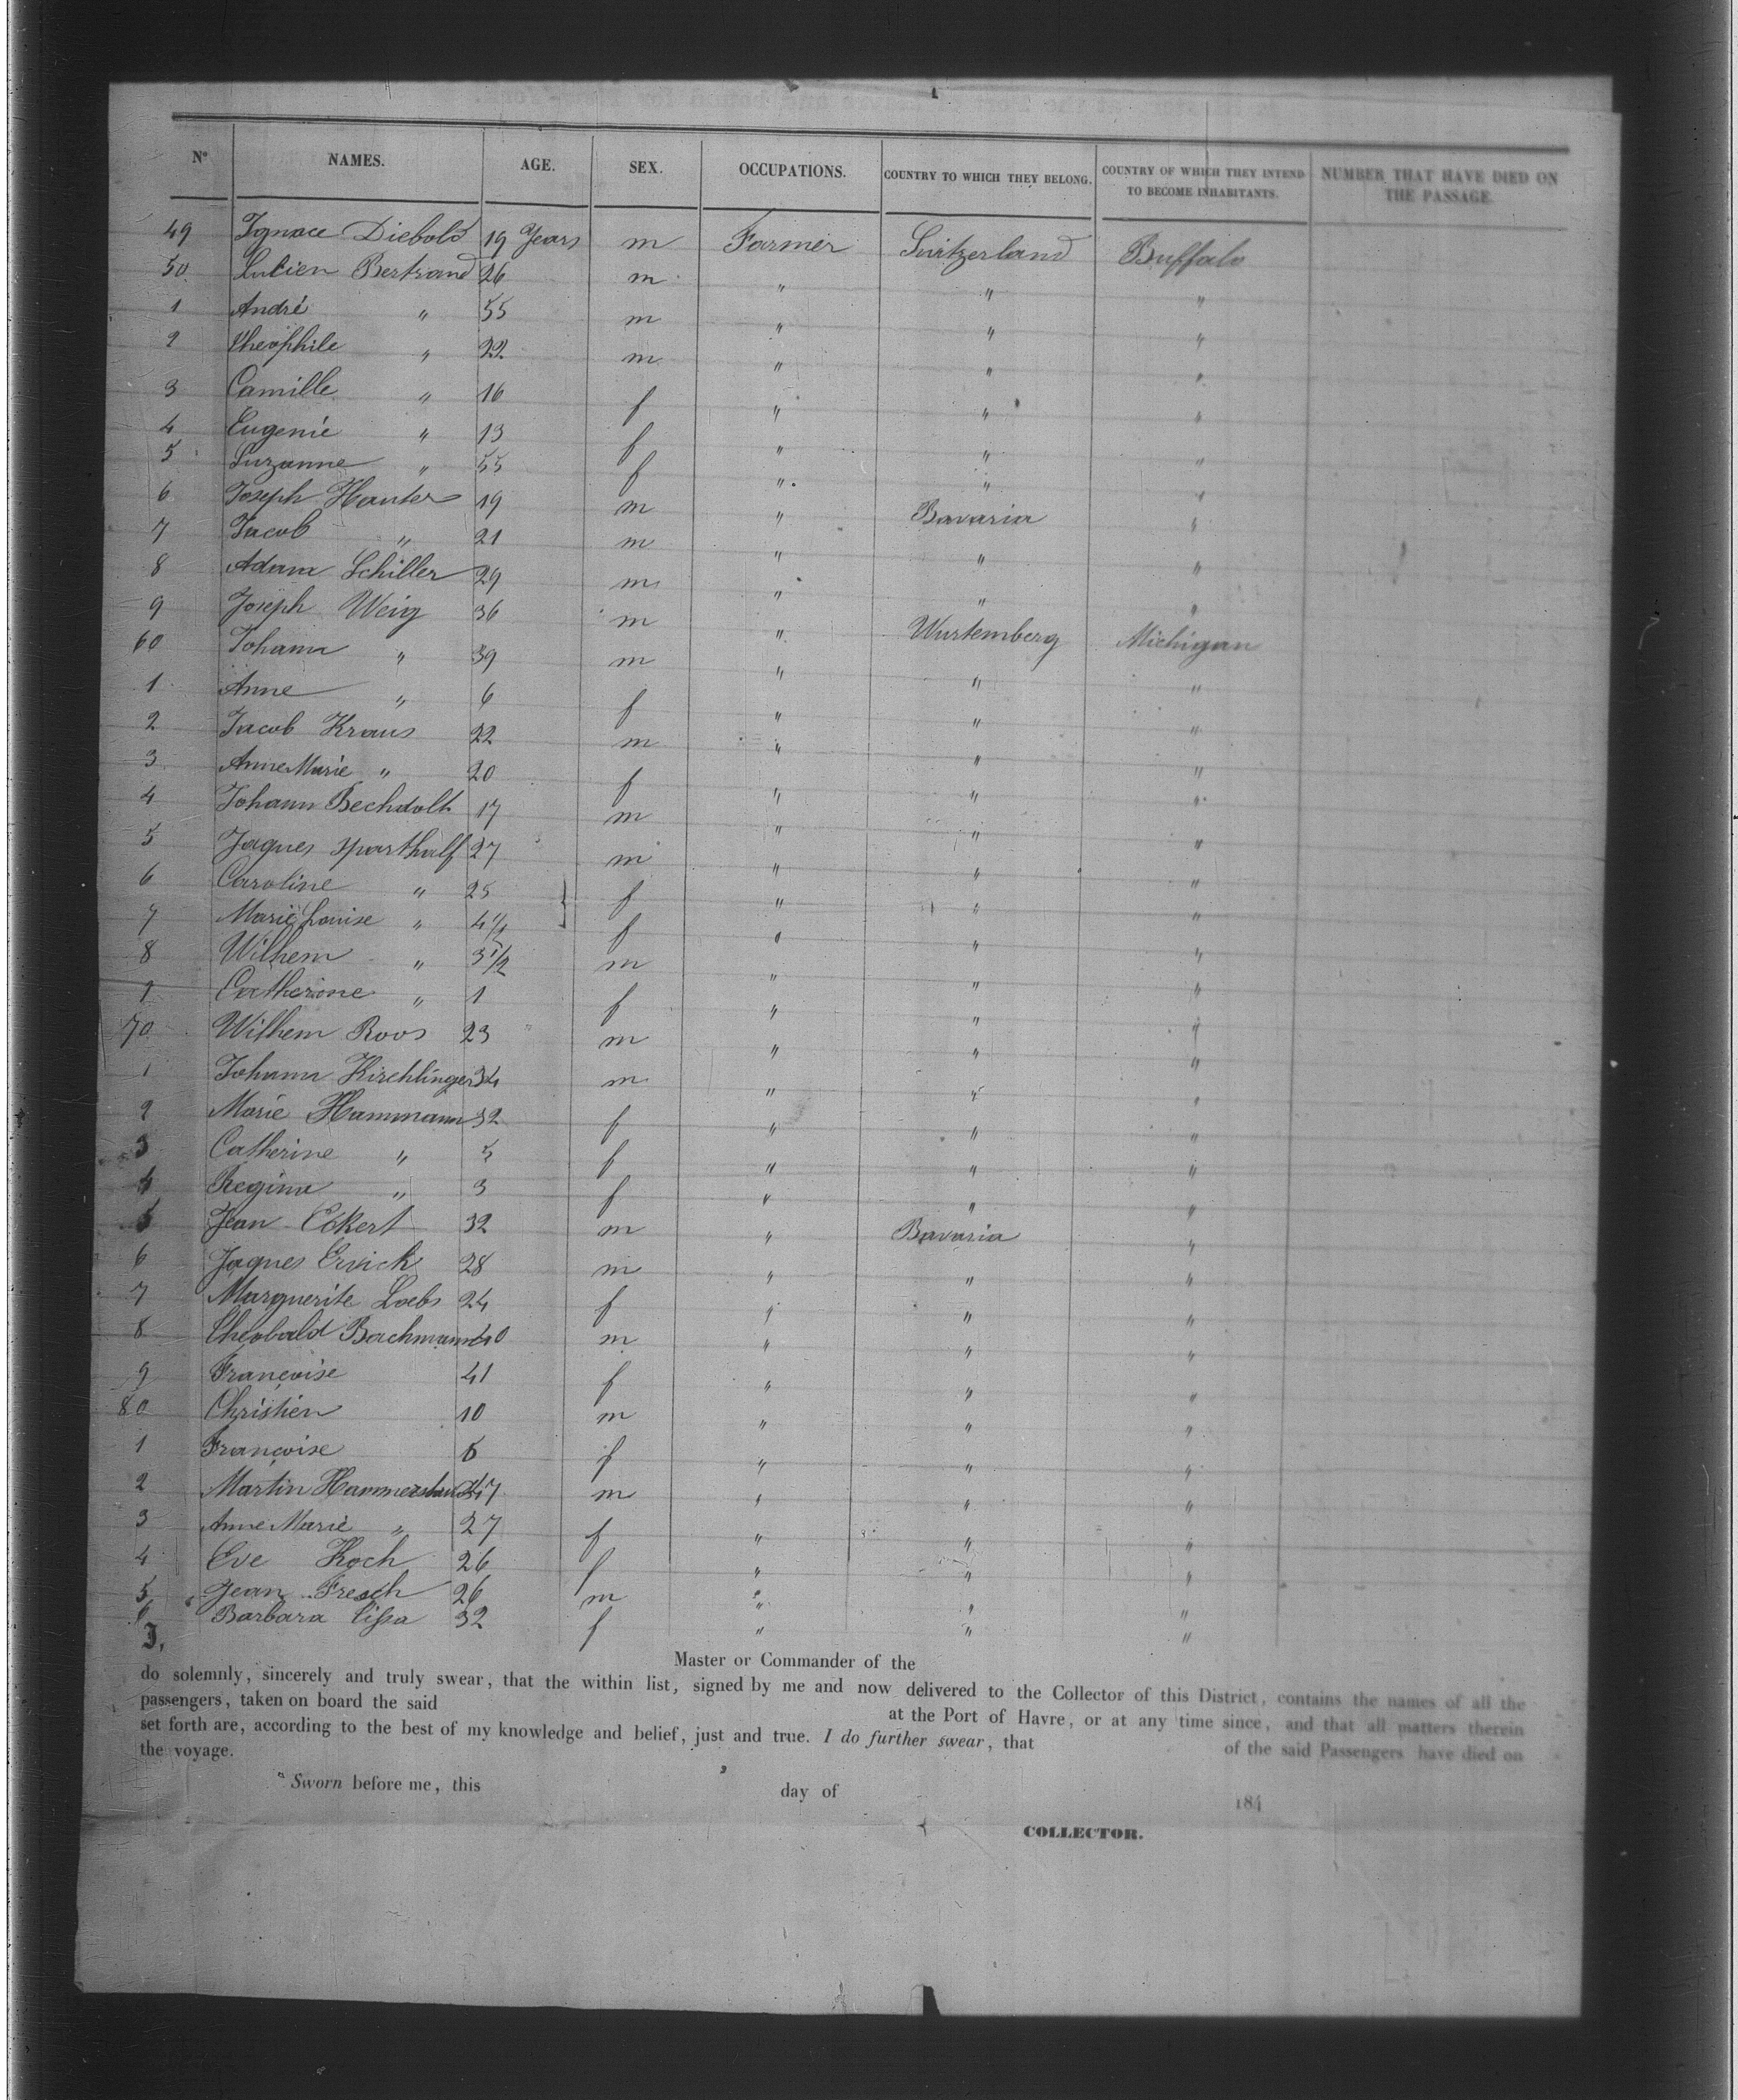 Nº NAMES. AGE. SEX. OCCUPATIONS. COUNTRY TO WHICH THEY BELONG. COUNTRY OF WHICH THEY INTEND TO BECOME INHABITANTS. NUMBER THAT HAVE DIED ON THE PASSAGE.
49 Ignace Diebold 19 Years m Farmer Switzerland Buffalo
50 Lucien Bertrand 26 m " " "
1 André " 55 m " " "
2 Theophile " 22 m " " "
3 Camille " 16 f " " "
4 Eugenie " 13 f " " "
5 Suzanne " 55 f " " "
6 Joseph Hauter 19 m " Bavaria "
7 Jacob " 21 m " " "
8 Adam Schiller 29 m " " "
9 Joseph Weig 36 m " Wurtemberg Michigan
60 Johann " 39 m " " "
1 Anne " 6 f " " "
2 Jacob Kraus 22 m " " "
3 Anne Marie " 20 f " " "
4 Johann Bechdolt 17 m " " "
5 Jaques 27 m " " "
6 Caroline " 25 f " " "
7 Marie Louise " f " " "
8 Wilhem " 3 1/2 m " " "
9 Catherine " 1 f " " "
70 Wilhem Roos 23 m " " "
1 Johann Kirchlinger 34 m " " "
2 Marie Hammann 32 f " " "
3 Catherine " 5 f " " "
4 Regina " 3 f " " "
5 Jean Eckert 32 m " Bavaria "
6 Jaques 28 m " " "
7 Marguerite Loebs 24 f " " "
8 Theobald Bachmann 40 m " " "
9 Françoise 41 f " " "
80 Christien 10 m " " "
1 Françoise 6 f " " "
2 Martin m " " "
3 Anne Marie " 27 f " " "
4 Eve Koch 26 f " " "
5 Jean Fresch 26 m " " "
6 Barbara 32 f " " "
I, Master or Commander of the
do solemnly, sincerely and truly swear, that the within list, signed by me and now delivered to the Collector of this District, contains the names of all the
passengers, taken on board the said at the Port of Havre, or at any time since, and that all matters therein
set forth are, according to the best of my knowledge and belief, just and true. I do further swear, that of the said Passengers have died on
the voyage.
Sworn before me, this day of 184
COLLECTOR.